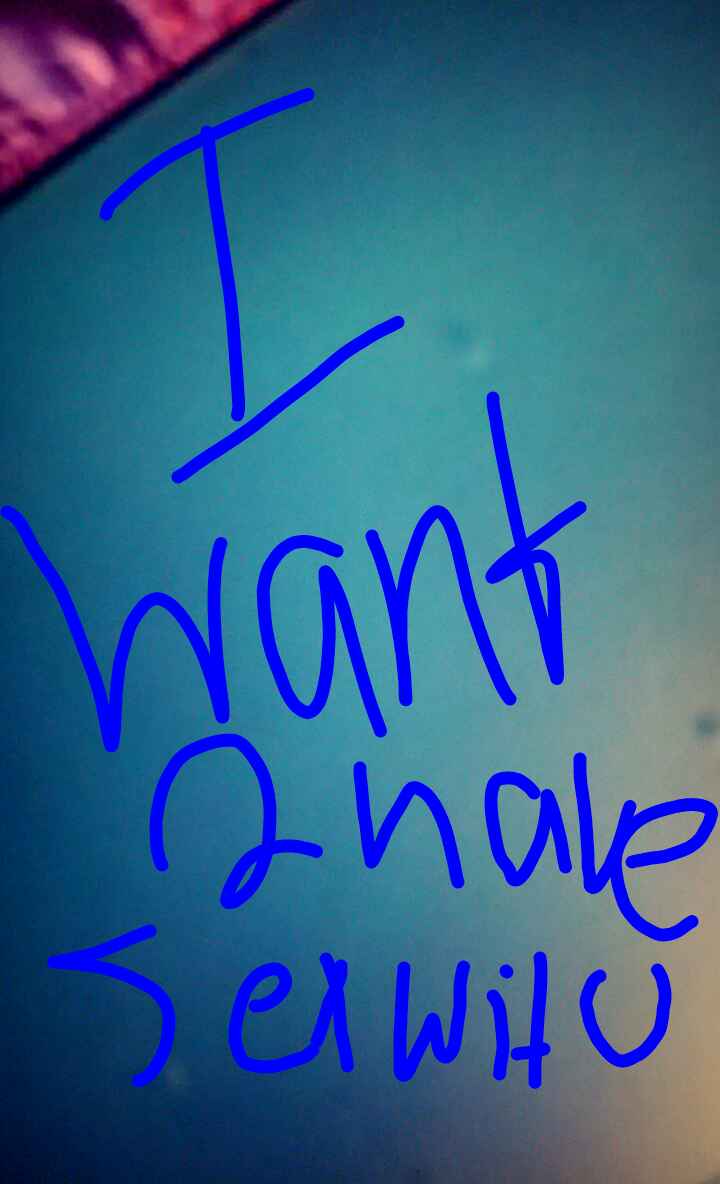 I
want
2 have
sex wit U